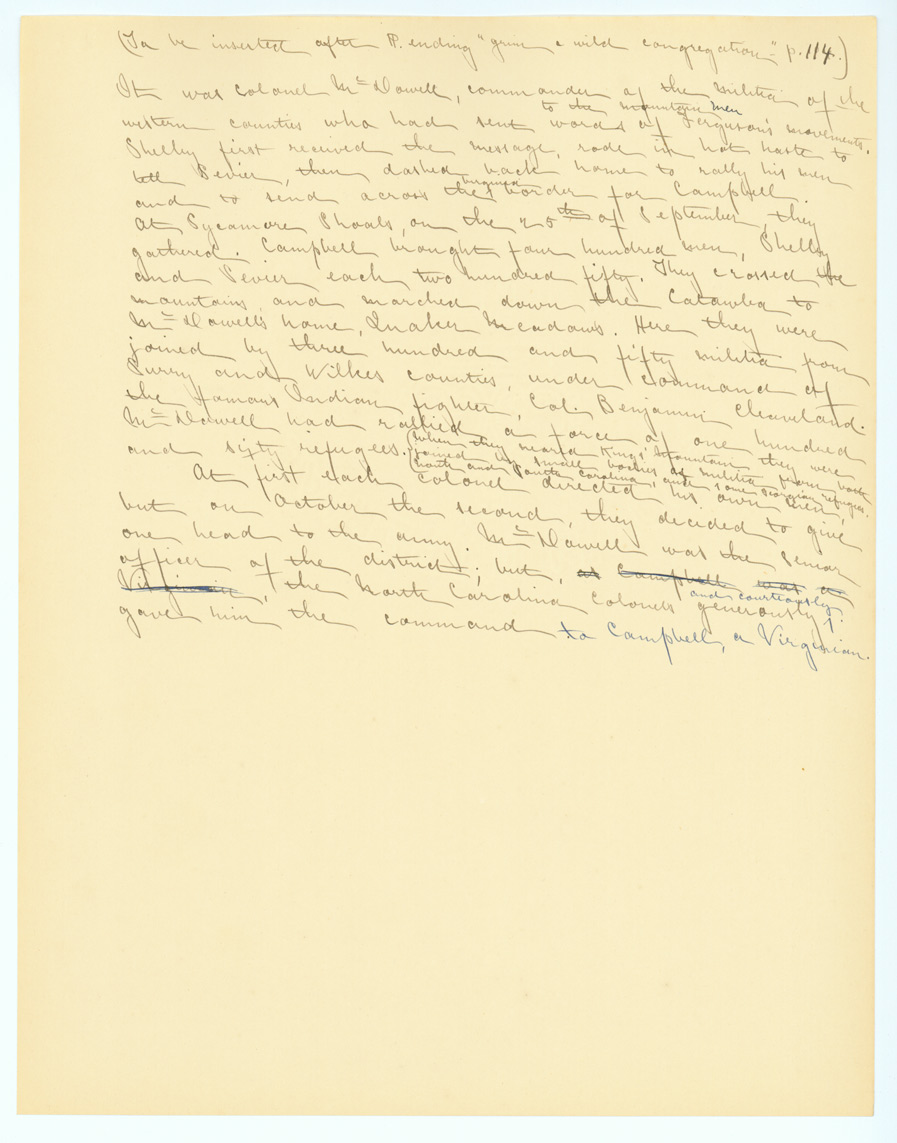 (To be inserted after P. ending "grim & wild congregation" p. 114.)
It was Colonel McDowell, commander of the militia of the
to the mountain men
western counties who had sent word of Ferguson's movements.
Shelby first received the message, rode in hot haste to
tell Sevier, then dashed back home to rally his men
and to send across the Virginia border for Campbell.
At Sycamore Shoals, on the 25th of September, they
gathered. Campbell brought four hundred men, Shelby
and Sevier each two hundred fifty. They crossed the
mountains and marched down the Catawba to
McDowell's home, Quaker Meadows. Here they were
joined by three hundred and fifty militia from
Surry and Wilkes counties, under command of
the famous Indian fighter, Col. Benjamin Cleveland.
McDowell had rallied a force of one hundred
and sixty refugees. (When they neared Kings' Mountain they were
joined by small bodies of militia from both
North and South Carolina, and some Georgian refugees.
At first each colonel directed his own men,
but on October the second, they decided to give
one head to the army. McDowell was the senior
officer of the district; but, as Campbell was a
Virginian, the North Carolina colonels generously
and courteously
gave him the command to Campbell, a Virginian.